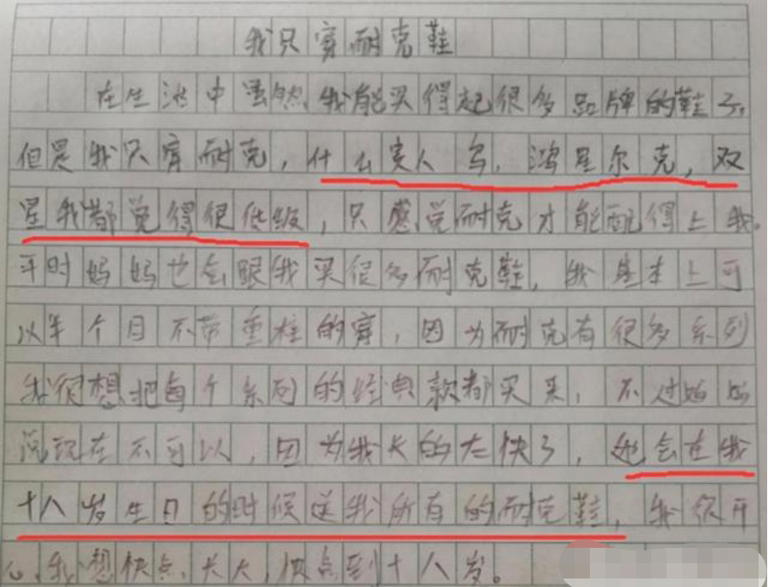 我只穿耐克鞋
在生活中虽然我能买得起很多品牌的鞋子,
但是我只穿耐克,什么贵人鸟,鸿星尔克,双
星我都觉得很低级,只感觉耐克才能配得上我。
平时妈妈也会跟我买很多耐克鞋,我基本上可
以半个月不带重样的穿,因为耐克有很多系列
我很想把每个系列的经典款都买来,不过妈妈
说现在不可以,因为我长的太快了,她会在我
十八岁生日的时候送我所有的耐克鞋,我很开
心,我想快点长大,快点到十八岁。